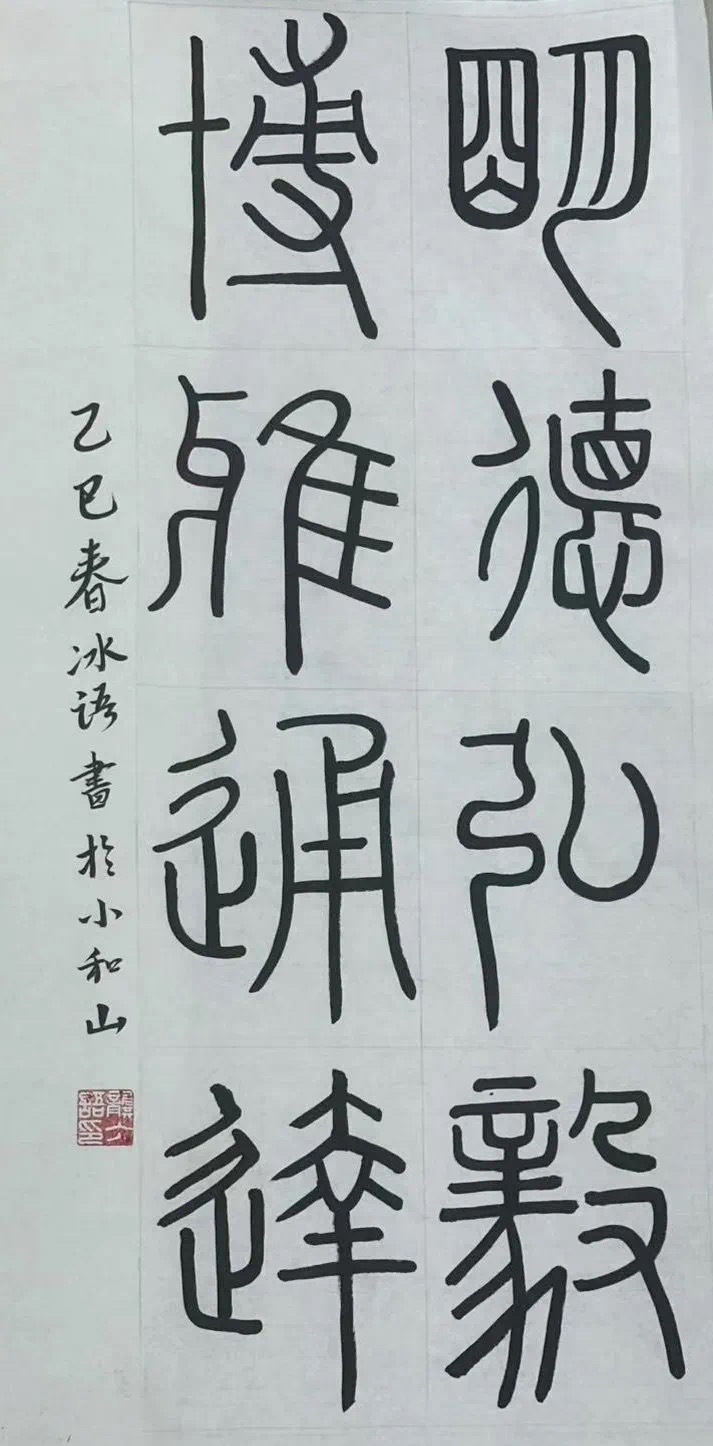 明德弘毅
博雅通達
乙巳春冰语書於小和山